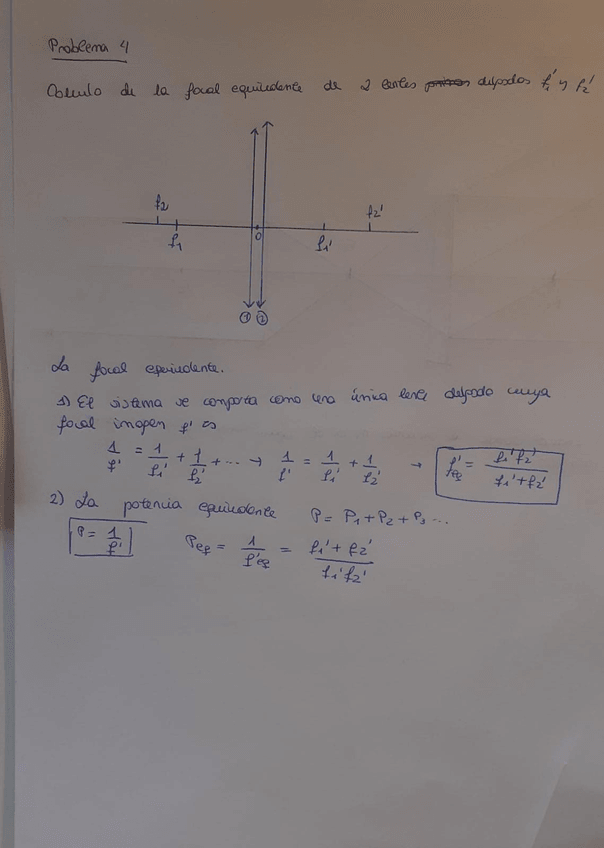 Problema 4
Calculo de la focal equivalente de 2 lentes delgadas f₁' y f₂'
f₂ f₂'
f₁ O f₁'
① ②
La focal equivalente.
1) El sistema se comporta como una única lente delgada cuya
focal imagen f' es
1/f' = 1/f₁' + 1/f₂' + ... → 1/f' = 1/f₁' + 1/f₂' → f'eq = f₁'f₂' / f₁'+f₂'
2) La potencia equivalente P = P₁ + P₂ + P₃ ...
P = 1/f' Peq = 1/f'eq = f₁' + f₂' / f₁'f₂'